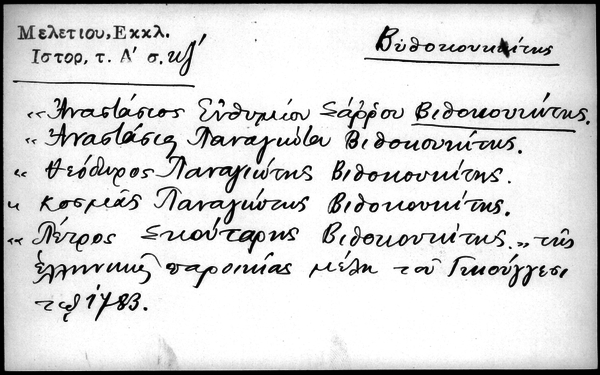 Μελετίου, Εκκλ.
Ιστορ, τ. Α' σ. κζ'
Βιθοκουκίτης
"Ἀναστάσιος Εὐθυμίου Σάρρου Βιθοκουκίτης.
"Ἀναστάσις Παναγιώτου Βιθοκουκίτης.
"Θεόδωρος Παναγιώτης Βιθοκουκίτης.
" Κοσμᾶς Παναγιώτης Βιθοκουκίτης.
"Πέτρος Σκούταρης Βιθοκουκίτης." τῆς
ἑλληνικῆς παροικίας μέλη τοῦ Γκιούγγεσι
τῷ 1783.